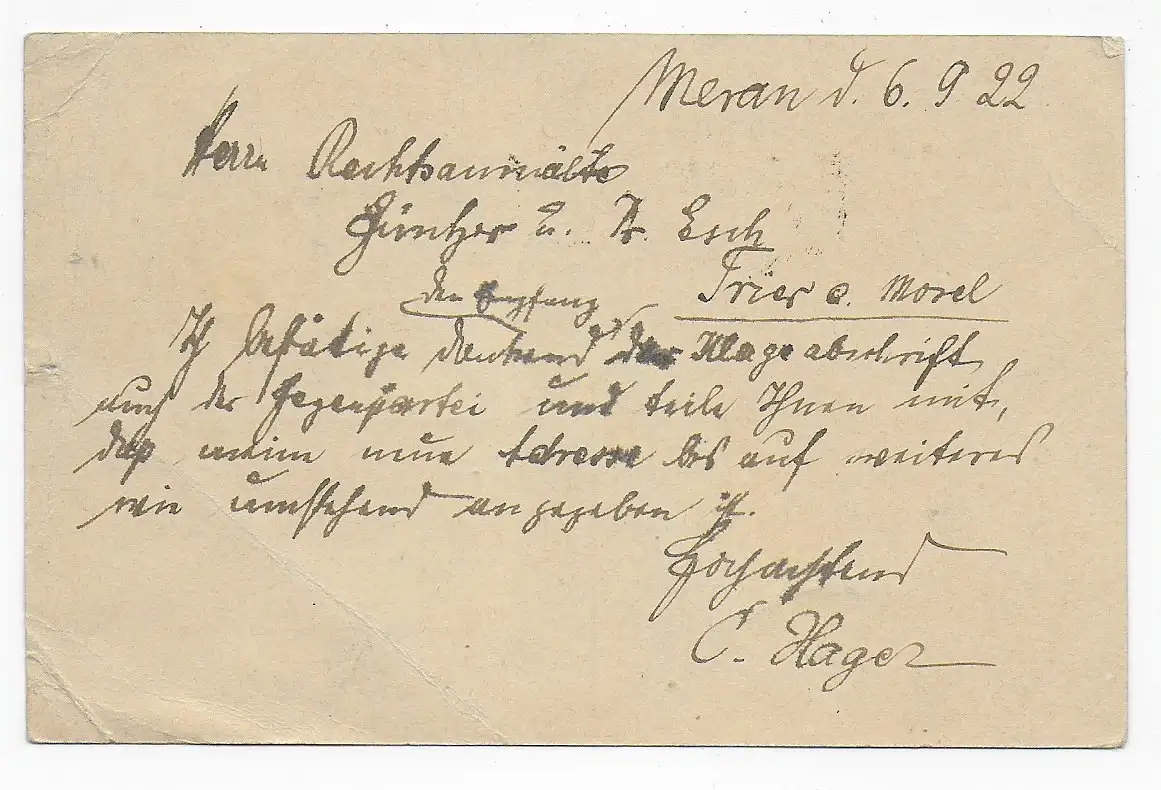 Meran d. 6. 9. 22
Herrn Rechtsanwälte
Günther u. Dr. Esch
Trier a. Mosel
den Empfang
Ich bestätige dankend der Klageabschrift
auch der Gegenpartei und teile Ihnen mit,
daß meine neue Adresse bis auf weiteres
wie umstehend angegeben ist.
Hochachtend
C. Hager